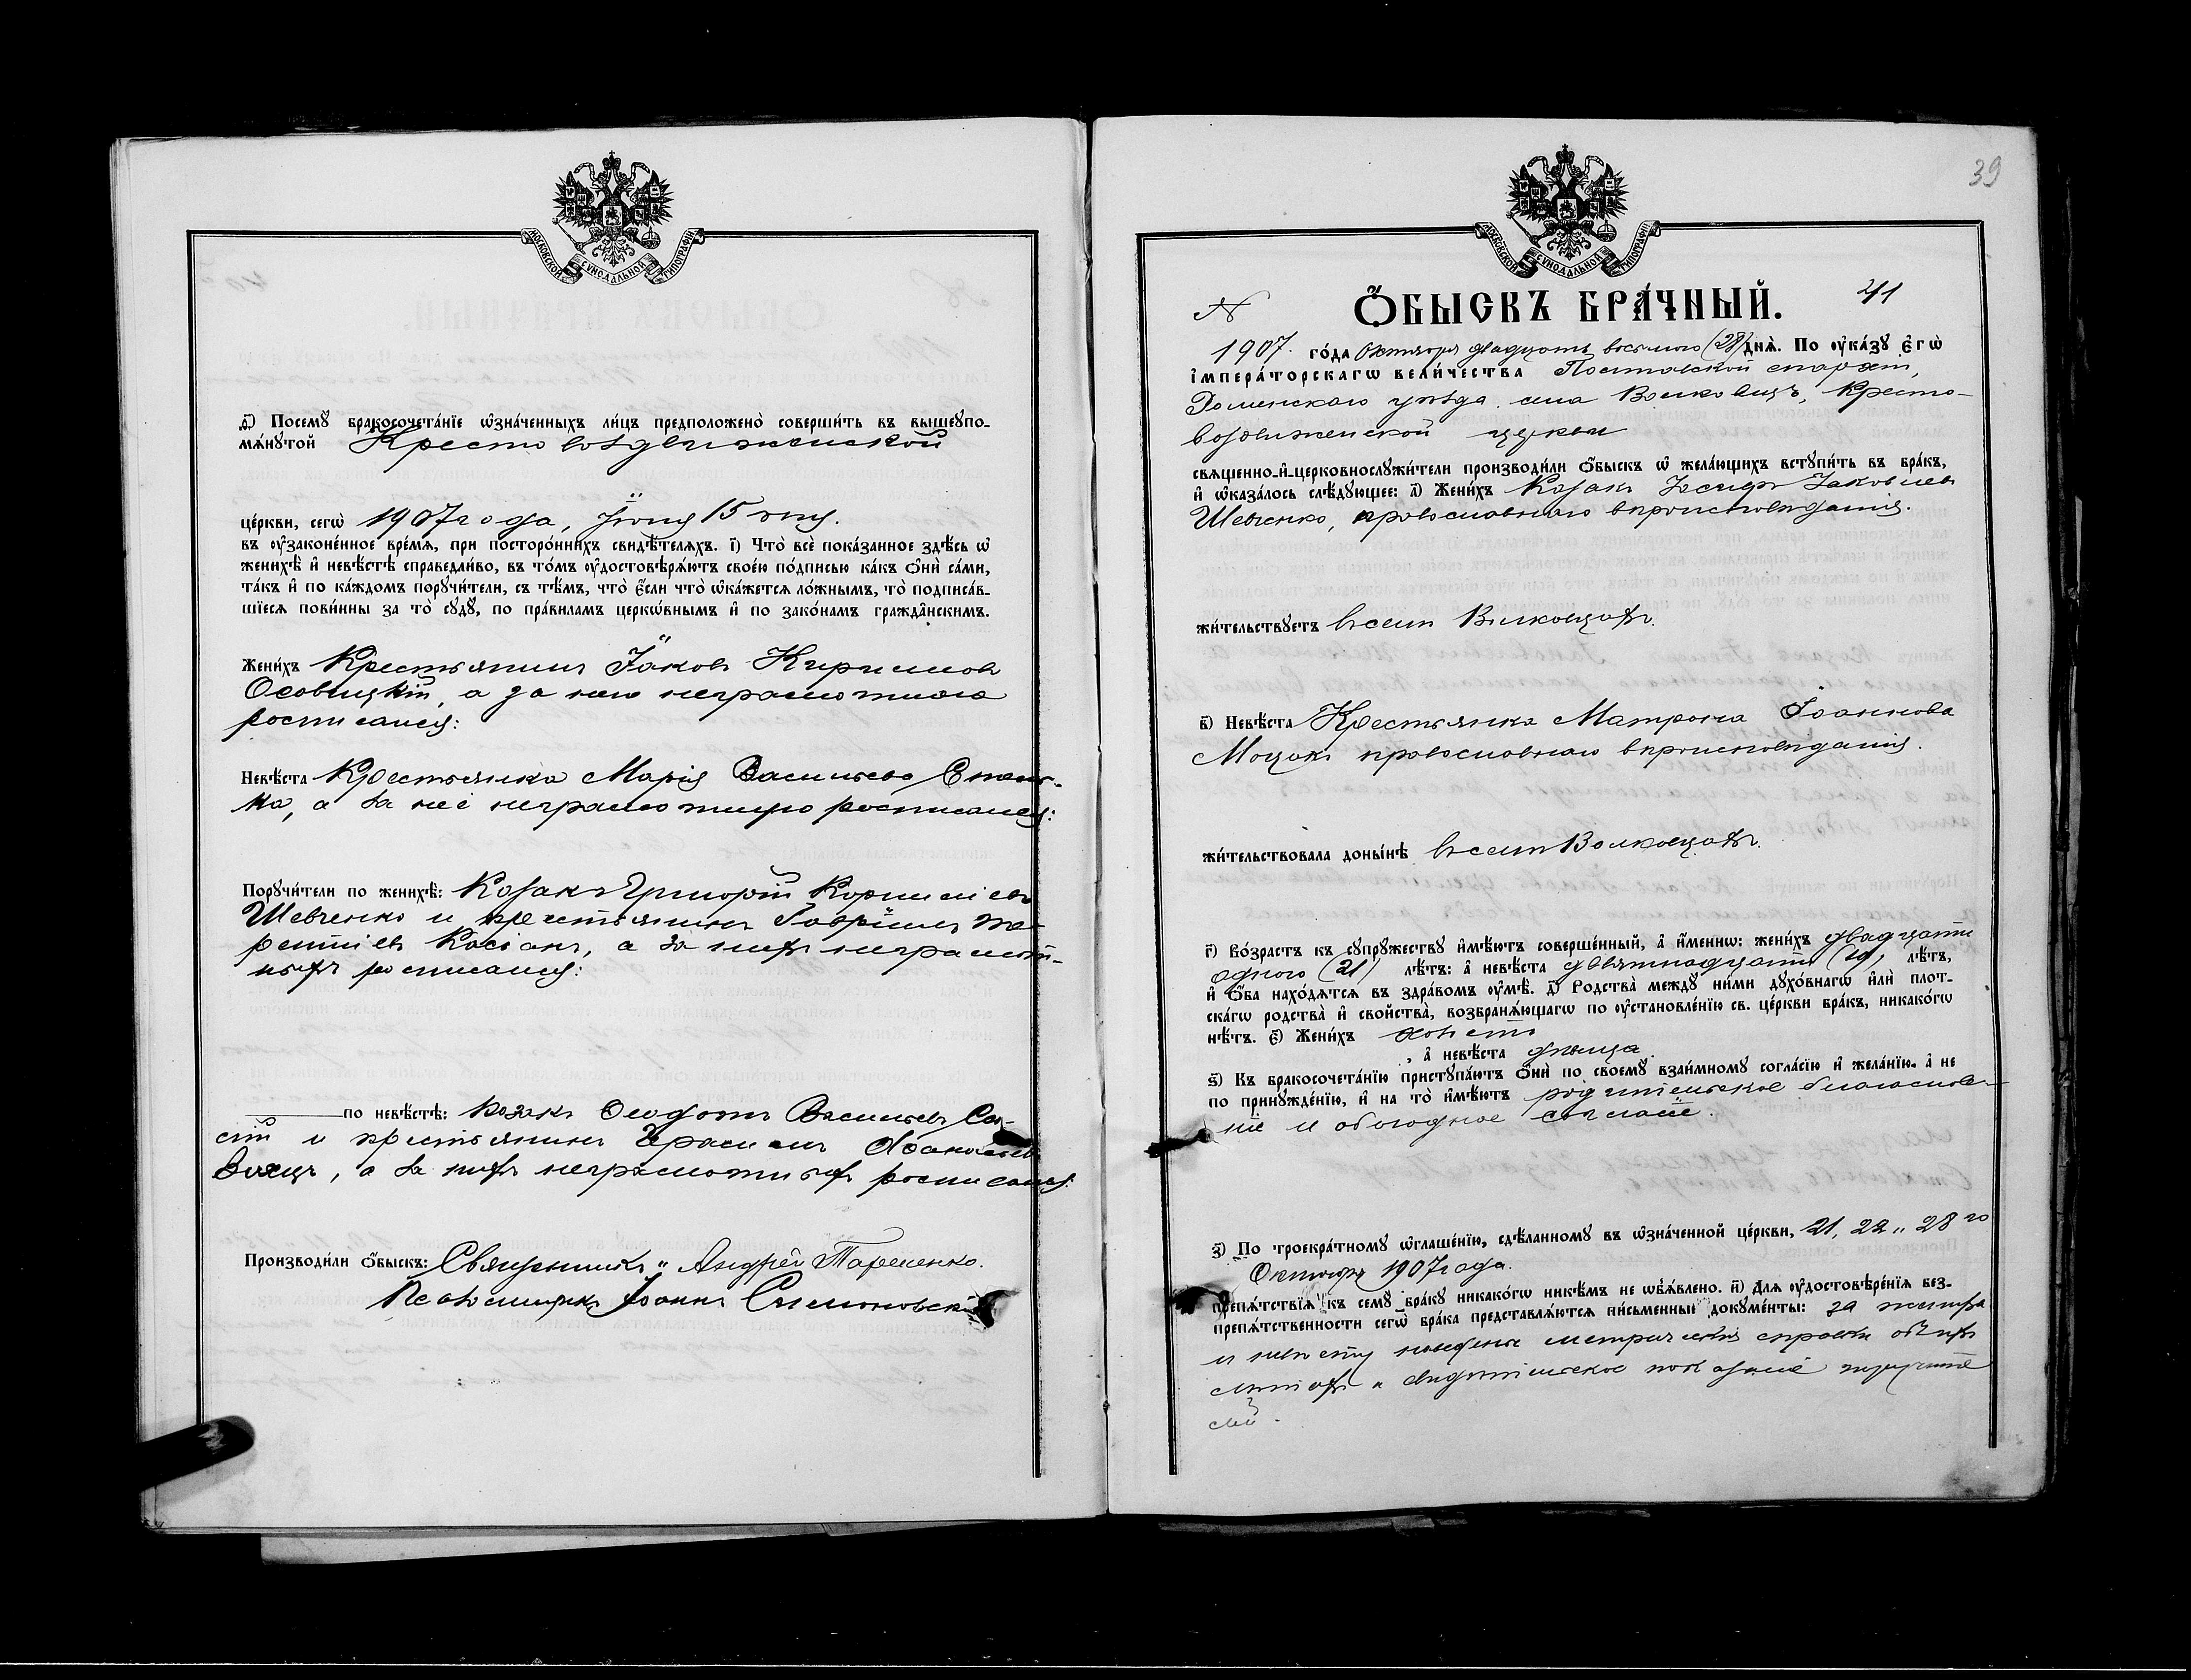 МОСКОВСКОЙ СѴНОДАЛЬНОЙ ТИПОГРАФІИ
ѳ҃) Посемꙋ̀ бракосочета́нїе ѡ҆зна́ченныхъ ли́цъ предположено̀ соверши́ть въ вышеꙋпо-
мѧ́нꙋтой Кресто воздвиженской
це́ркви, сегѡ̀ 1907 года, Іюня 15 дня.
въ ᲂу҆зако́ненное вре́мѧ, при посторо́ннихъ свидѣ́телѧхъ. і҃) Что̀ всѐ пока́занное здѣ́сь ѡ҆
женихѣ̀ и҆ невѣ́стѣ справедли́во, въ то́мъ ᲂу҆достовѣрѧ́ютъ свое́ю по́дписью ка́къ ѻ҆нѝ са́ми,
та́къ и҆ по ка́ждомъ порꙋчи́тели, съ тѣ́мъ, что̀ є҆́сли что̀ ѡ҆ка́жетсѧ ло́жнымъ, то̀ подписа́в-
шїесѧ пови́нны за то̀ сꙋдꙋ̀, по пра́виламъ церко́внымъ и҆ по зако́намъ гражда́нскимъ.
Жени́хъ Крестьянинъ Іаковъ Кириловъ
Осовицкій, а за него неграмотнаго
росписался:
Невѣ́ста Крестьянка Марія Васильева
ка, а за неё неграмотную росписался:
Порꙋчи́тели по женихѣ̀: Козакъ Григорій Корниліевъ
Шевченко и крестьянинъ Гавріилъ Те-
рентіевъ Касіанъ, а за нихъ неграмот-
ныхъ росписался:
по невѣ́стѣ: козакъ Ѳеодотъ Васильевъ
и крестьянинъ Герасимъ
а за нихъ неграмотныхъ росписался:
Производи́ли ѻ҆́быскъ: Священникъ Андрей Тарасенко.
Псаломщикъ Іоаннъ Симоновскій
39
МОСКОВСКОЙ СѴНОДАЛЬНОЙ ТИПОГРАФІИ
N Ѻ҆́БЫСКЪ БРА́ЧНЫЙ. 41
1907. го́да Октября двадцать восьмого (28) днѧ̀. По ᲂу҆ка́зꙋ є҆гѡ̀
і҆мпера́торскагѡ вели́чества Полтавской епархіи,
Роменскаго уѣзда села Волковецъ, Кресто-
воздвиженской церкви
свѧщенно-и҆-церковнослꙋжи́тели производи́ли ѻ҆́быскъ ѡ҆ жела́ющихъ встꙋпи́ть въ бра́къ,
и҆ ѡ҆каза́лось слѣ́дꙋющее: а҃) Жени́хъ Козакъ Іосифъ Іаковлевъ
Шевченко, православнаго вѣроисповѣданія.
жи́тельствꙋетъ въ селѣ Волковцахъ.
в҃) Невѣ́ста Крестьянка Матрона Іоаннова
Моцакъ православнаго вѣроисповѣданія.
жи́тельствовала доны́нѣ въ селѣ Волковцахъ.
г҃) Во́зрастъ къ сꙋпрꙋ́жествꙋ и҆мѣ́ютъ соверше́нный, а҆ и҆́меннѡ: жени́хъ двадцати
одного (21) лѣ́тъ: а҆ невѣ́ста девятнадцати (19) лѣ́тъ,
и҆ ѻ҆́ба нахо́дѧтсѧ въ здра́вомъ ᲂу҆мѣ̀. д҃) Родства̀ междꙋ̀ ни́ми дꙋхо́внагѡ и҆лѝ плот-
ска́гѡ родства̀ и҆ свойства̀, возбранѧ́ющагѡ по ᲂу҆становле́нїю св. це́ркви бра́къ, никако́гѡ
нѣ́тъ. є҃) Жени́хъ холостъ
, а҆ невѣ́ста дѣвица.
ѕ҃) Къ бракосочета́нїю пристꙋпа́ютъ ѻ҆нѝ по своемꙋ̀ взаи́мномꙋ согла́сїю и҆ жела́нїю, а҆ не
по принꙋжде́нїю, и҆ на то̀ и҆мѣ́ютъ родительское благослове-
ніе и обоюдное согласіе.
з҃) По троекра́тномꙋ ѡ҆глаше́нїю, сдѣ́ланномꙋ въ ѡ҆зна́ченной це́ркви, 21, 22 и 28 го
Октября 1907 года.
препѧ́тствїѧ къ семꙋ̀ бра́кꙋ никако́гѡ никѣ́мъ не ѡ҆б̾ѧ́влено. и҃) Для ᲂу҆достовѣре́нїѧ без-
препѧ́тственности сегѡ̀ бра́ка представлѧ́ютсѧ пи́сьменные докꙋме́нты: за жениха
и невѣсту наведены метрическія справки объ ихъ
лѣтахъ и свидѣтельское показаніе поручите-
лей.